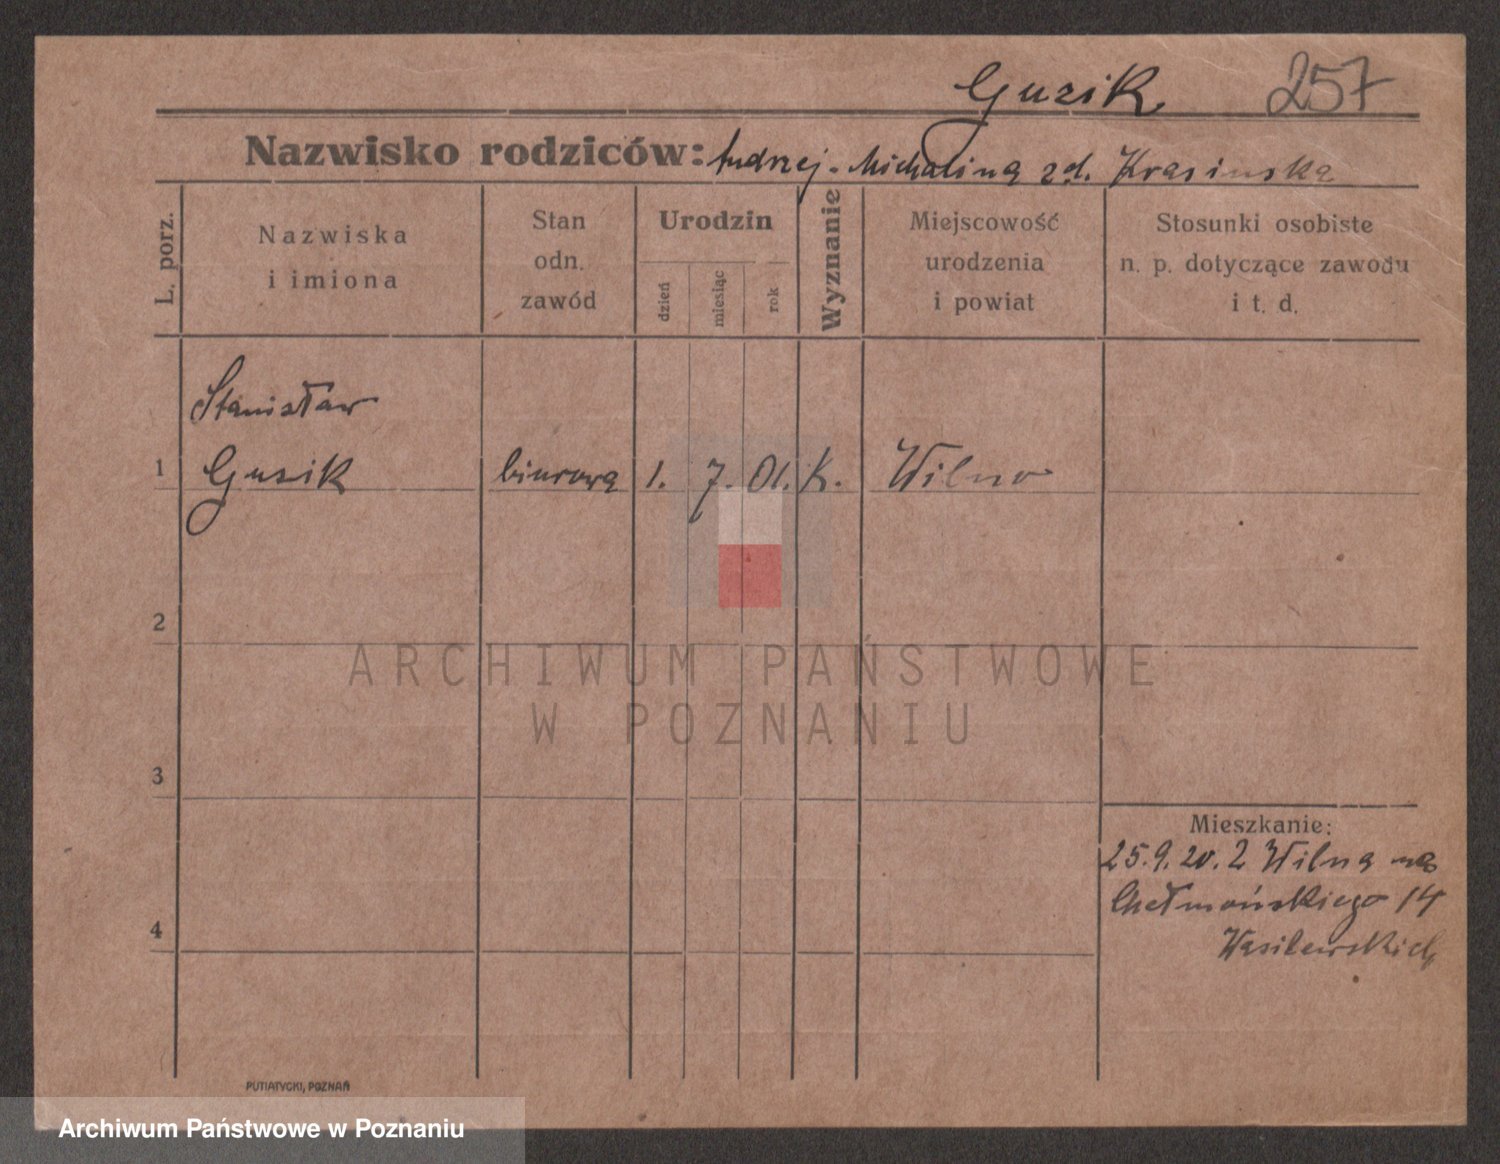 Guzik 257
Nazwisko rodziców: Andrzej - Michalina zd. Krasinska
L. porz.
Nazwiska
i imiona
Stan
odn.
zawód
Urodzin
dzień
miesiąc
rok
Wyznanie
Miejscowość
urodzenia
i powiat
Stosunki osobiste
n. p. dotyczące zawodu
i t. d.
Stanisław
1 Guzik biurową 1. 7. 01. K. Wilno
2
ARCHIWUM PAŃSTWOWE
W POZNANIU
3
Mieszkanie:
25.9.20. Z Wilna na
Chełmońskiego 14
4
Wasilewskich
PUTIATYCKI, POZNAŃ
Archiwum Państwowe w Poznaniu